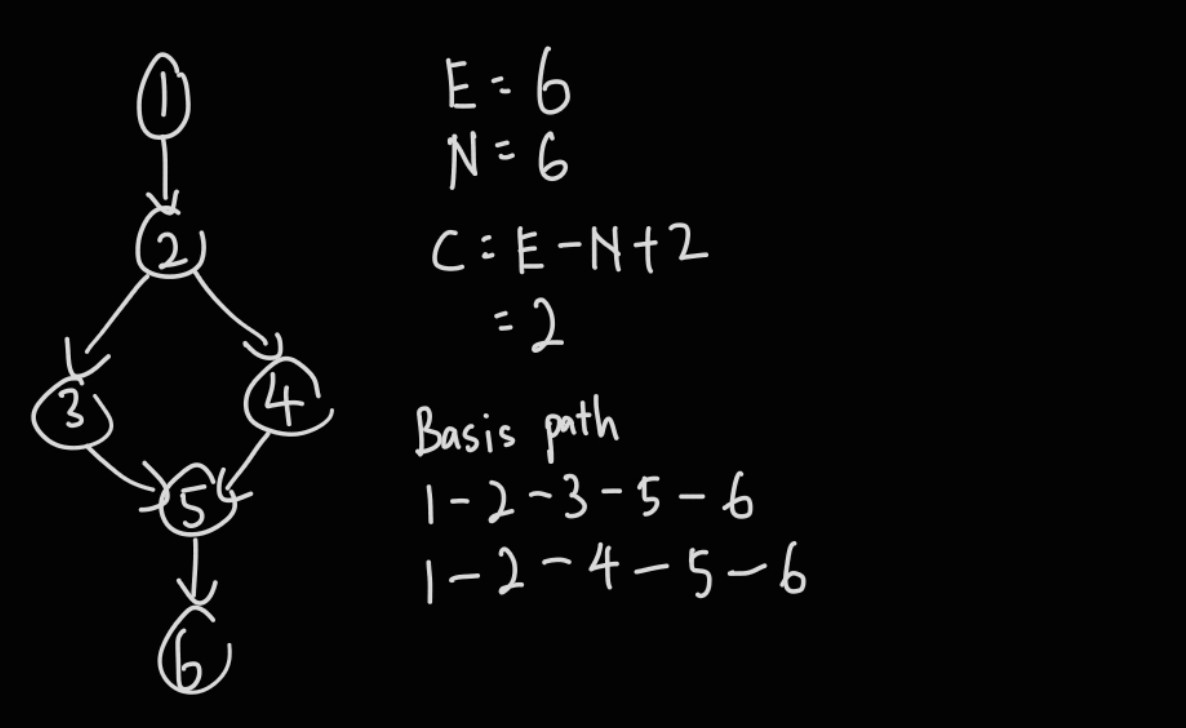 1
2
3
4
5
6
E = 6
N = 6
C = E - N + 2
= 2
Basis path
1 - 2 - 3 - 5 - 6
1 - 2 - 4 - 5 - 6